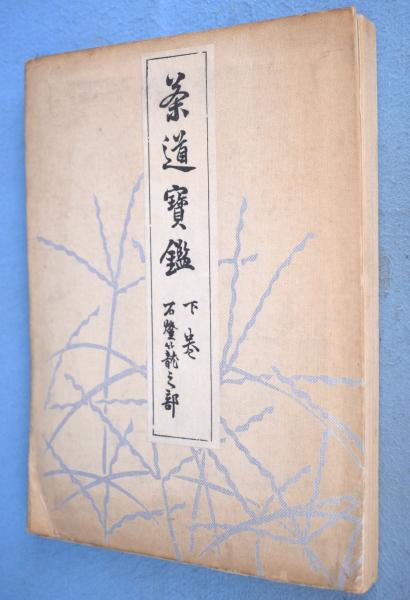 茶道寶鑑
下巻
石燈籠之部